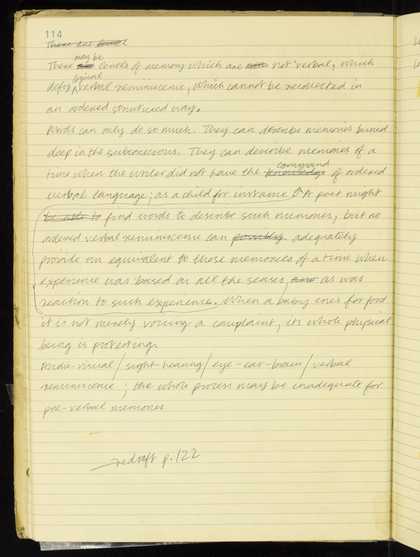 114
There are
may be
There are centres of memory which are not verbal, which
defy verbal reminiscence, which cannot be recollected in
an ordered structured way.
Words can only do so much. They can describe memories buried
deep in the subconscious. They can describe memories of a
time when the writer did not have the
command
knowledge of ordered
verbal language; as a child for instance. A poet might
be able to find words to describe such memories, but no
ordered verbal reminiscence can possibly adequately
provide an equivalent to those memories of a time when
experience was based on all the senses, as was
reaction to such experience. When a baby cries for food
it is not merely voicing a complaint, its whole physical
being is protesting.
Audio-visual / sight-hearing / eye-ear-brain / verbal
reminiscence ; the whole process may be inadequate for
pre-verbal memories
redraft p.122